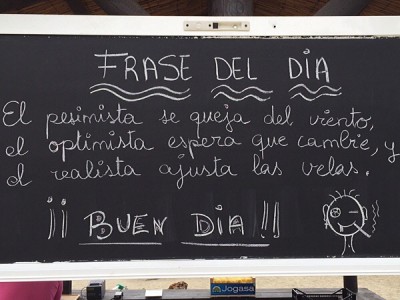 FRASE DEL DIA
El pesimista se queja del viento,
el optimista espera que cambie, y
el realista ajusta las velas.
¡¡ BUEN DIA !!
Jogasa